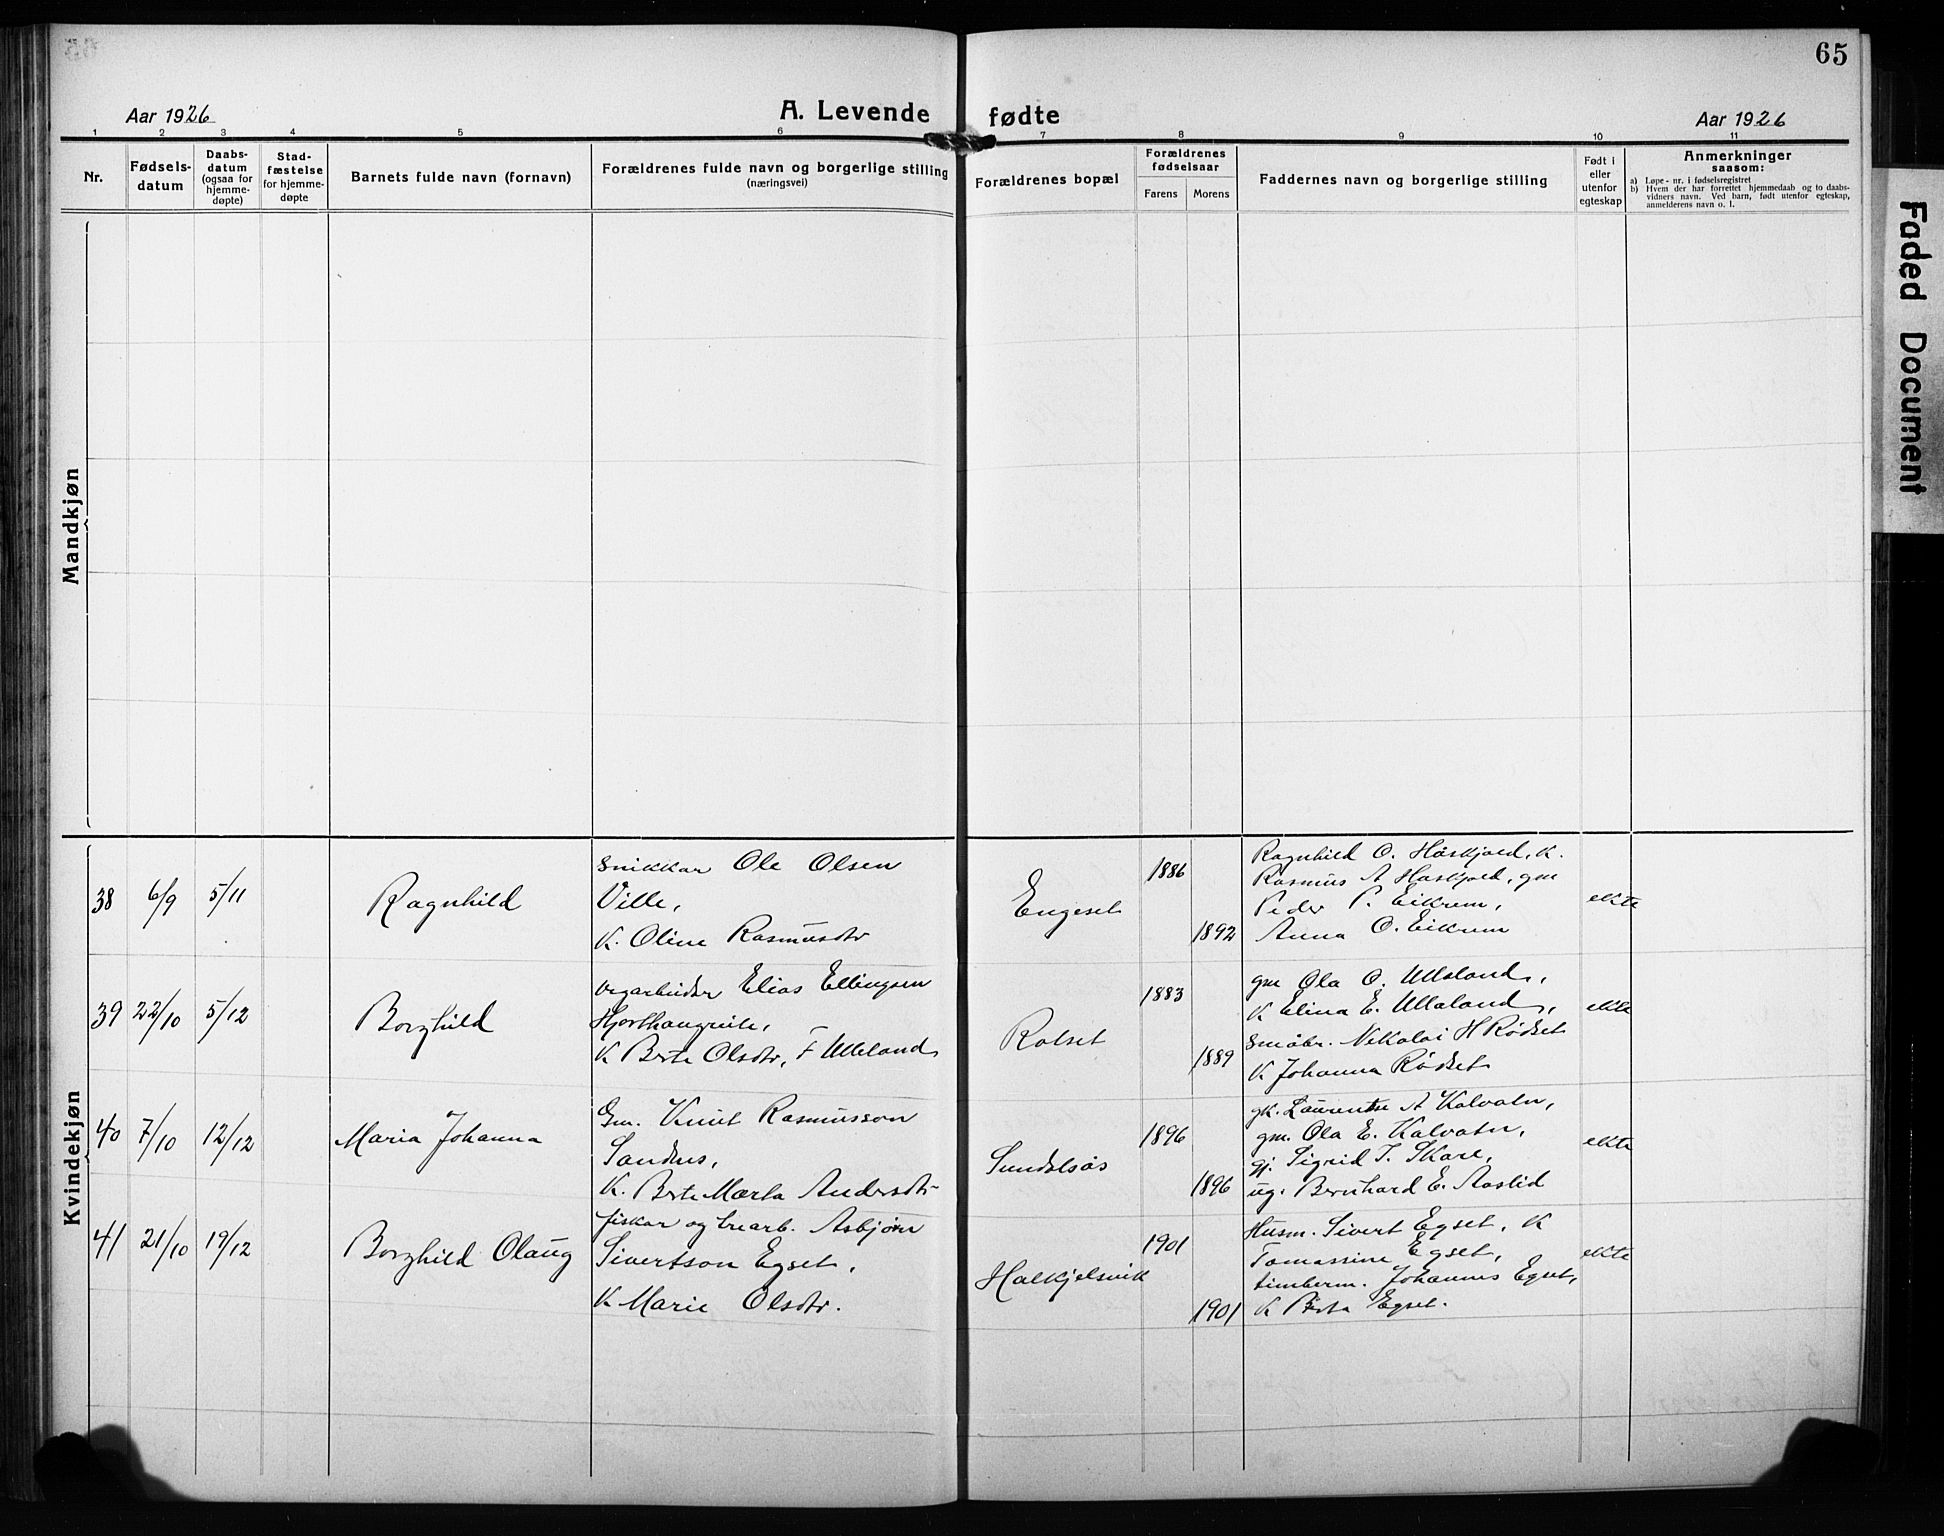 65
Aar 1926
A. Levende fødte
Aar 1926
1 2 3 4 5 6 7 8 9 10 11
Nr.
Fødsels-
datum
Daabs-
datum
(ogsaa for
hjemme-
døpte)
Stad-
fæstelse
for hjemme-
døpte
Barnets fulde navn (fornavn)
Forældrenes fulde navn og borgerlige stilling
(næringsvei)
Forældrenes bopæl
Forældrenes
fødselsaar
Farens Morens
Faddernes navn og borgerlige stilling
Født i
eller
utenfor
egteskap
Anmerkninger
saasom:
a) Løpe-nr. i fødselsregistret
b) Hvem der har forrettet hjemmedaab og to daabs-
vidners navn. Ved barn, født utenfor egteskap,
anmelderens navn o. l.
Mandkjøn
Kvindekjøn
38 6/9 5/11
Ragnhild
snikkar Ole Olsen
Ville,
K. Oline Rasmusdtr
Engeset
1886
1892
Ragnhild O. Haskjold, K.
Rasmus A Haskjold, gm
Peder P. Eikrem,
Anna O. Eikrem
ekte
39 22/10 5/12
Borghild
vegarbeider Elias Ellingsen
Hjorthaugreite,
K Berte Olsdtr, F Ulleland
Rotset
1883
1889
gm Ola O. Ullaland,
K Elina E. Ullaland,
småbr. Nikolai H Rødset
K Johanna Rødset
ekte
40 7/10 12/12
Maria Johanna
Gm. Knut Rasmusson
Sandnes,
K. Berte Marta Andersdtr
Sundalsøs
1896
1896
gk. Laurentse A Kalvatn,
gm. Ola E. Kalvatn,
gj. Sigrid J. Skare,
ug. Bernhard E. Aaslid
ekte
41 21/10 19/12
Borghild Olaug
fiskar og trearb. Asbjørn
Sivertson Egset,
K Marie Olsdtr.
Halkjelsvik
1901
1901
Husm. Sivert Egset, K
Tomassine Egset,
timberm. Johannes Egset,
K Berta Egset.
ekte
Faded Document